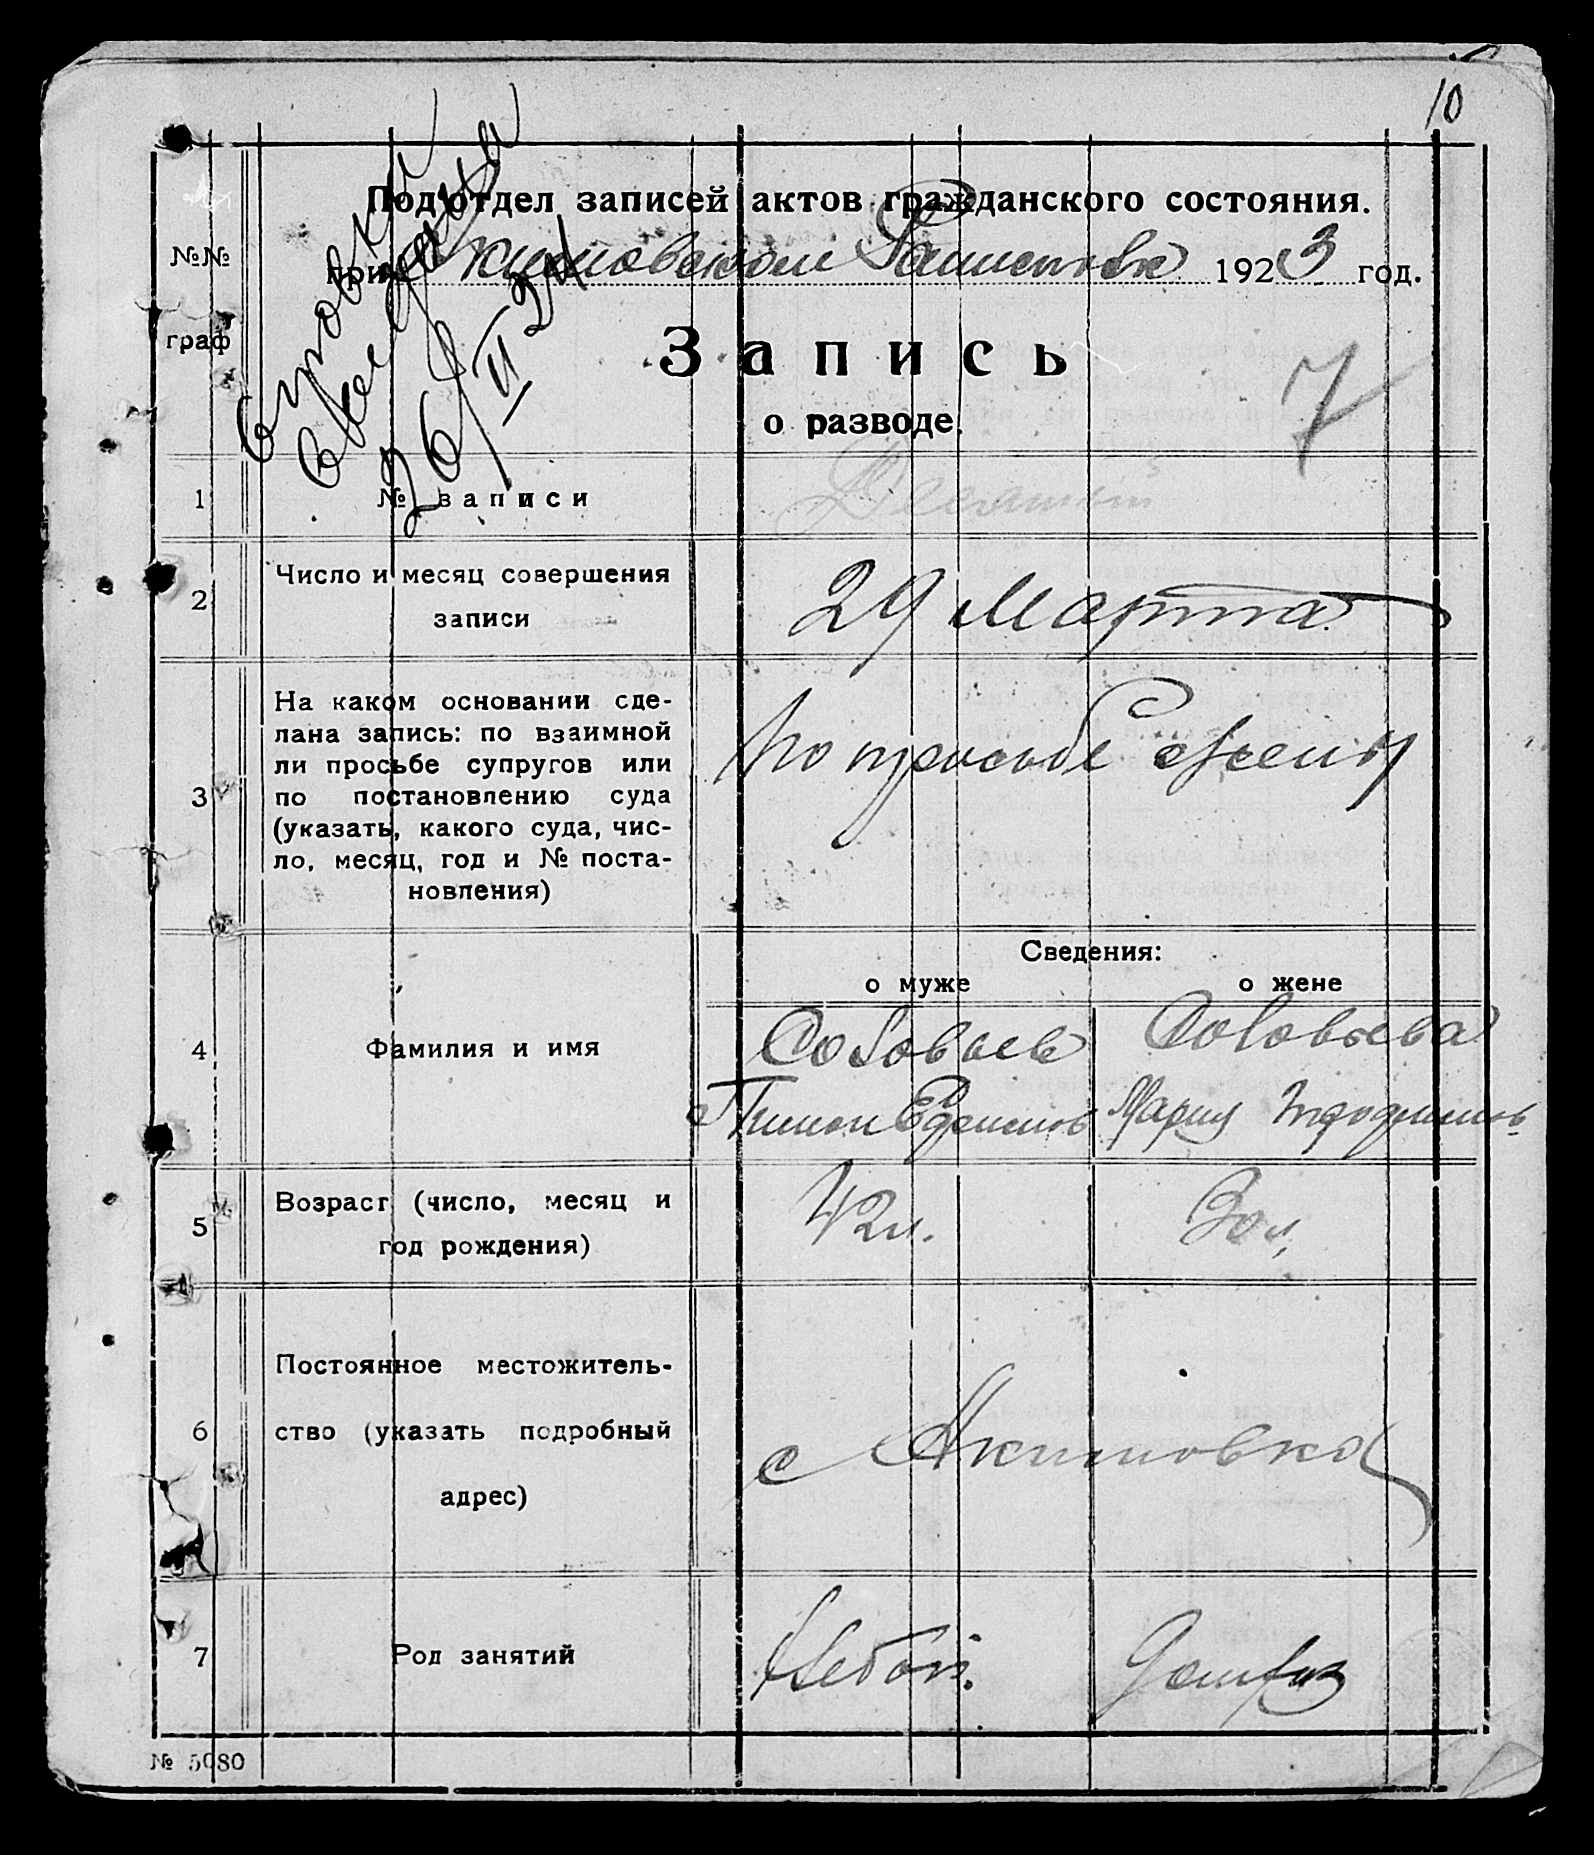 10
Подотдел записей актов гражданского состояния.
№№ граф
при Акимовском 1923 год.
Запись
7
о разводе.
1 № записи Десятый
2 Число и месяц совершения
записи
29 Марта
3 На каком основании сде-
лана запись: по взаимной
ли просьбе супругов или
по постановлению суда
(указать, какого суда, чис-
ло, месяц, год и № поста-
новления)
По просьбе жены
Сведения:
о муже о жене
4 Фамилия и имя
Соловьев Соловьева
Мария
5 Возраст (число, месяц и
год рождения)
42 л. 30 л.
6 Постоянное местожитель-
ство (указать подробный
адрес)
с Акимовка
7 Род занятий
Хлебоп. Домхоз
№ 5080